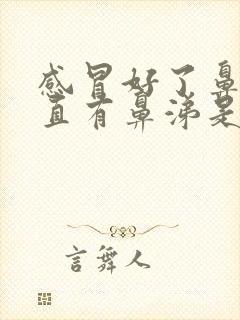 感冒好了鼻
直有鼻涕是
言舞人